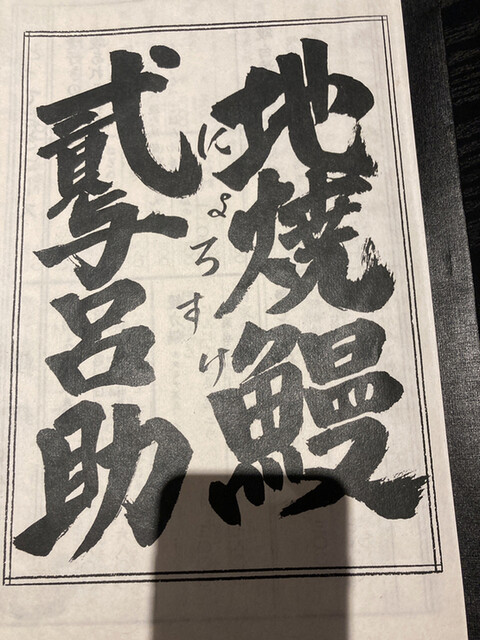 地焼鰻
にょろすけ
貳与呂助